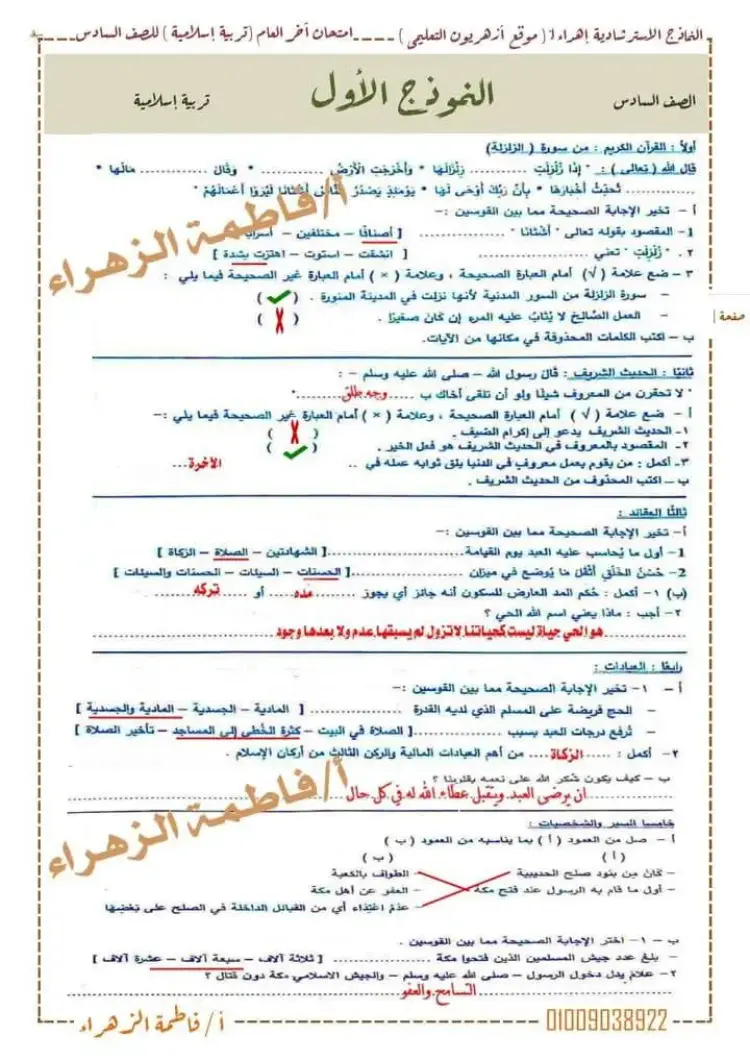 النماذج الاسترشادية إهداء ( موقع أزهريون التعليمى ) ---- امتحان آخر العام (تربية إسلامية ) للصف السادس
الصف السادس
النموذج الأول
تربية إسلامية
أولاً : القرآن الكريم : من سورة ( الزلزلة)
قال الله ( تعالى ) : " إِذَا زُلْزِلَتِ .......... زِلْزَالَهَا * وَأَخْرَجَتِ الْأَرْضُ .......... * وَقَالَ .......... مَالَهَا *
.......... تُحَدِّثُ أَخْبَارَهَا * بِأَنَّ رَبَّكَ أَوْحَى لَهَا * يَوْمَئِذٍ يَصْدُرُ النَّاسُ أَشْتَاتًا لِّيُرَوْا أَعْمَالَهُمْ "
أ - تخير الإجابة الصحيحة مما بين القوسين :
1- المقصود بقوله تعالى " أَشْتَاتًا " .......... [ أصنافًا – مختلفين – أسرابًا
٢ . " زُلْزِلَتِ " تعني .......... [ انشقت – استوت – اهتزت بشدة ]
٣ – ضع علامة ( √ ) أمام العبارة الصحيحة ، وعلامة ( × ) أمام العبارة غير الصحيحة فيما يلي :
– سورة الزلزلة من السور المدنية لأنها نزلت في المدينة المنورة . ( ✓ )
– العمل الصَّالِحُ لا يُثابُ عليه المرء إن كان صغيرًا . ( X )
ب – اكتب الكلمات المحذوفة في مكانها من الآيات.
صفحة 1
ثانيًا : الحديث الشريف : قال رسول الله – صلى الله عليه وسلم – :
" لا تحقرن من المعروف شيئًا ولو أن تلقى أخاك ب ..... وجه طلق ....."
أ – ضع علامة ( √ ) أمام العبارة الصحيحة ، وعلامة ( × ) أمام العبارة غير الصحيحة فيما يلي :–
١– الحديث الشريف يدعو إلى إكرام الضيف . ( X )
٢– المقصود بالمعروف في الحديث الشريف هو فعل الخير . ( ✓ )
٣– أكمل : من يقوم بعمل معروف في الدنيا يلق ثوابه عمله في .. الآخرة...
ب – اكتب المحذوف من الحديث الشريف .
ثالثًا العقائد :
أ– تخير الإجابة الصحيحة مما بين القوسين :–
1– أول ما يُحاسب عليه العبد يوم القيامة.......... [ الشهادتين – الصلاة – الزكاة ]
2– حُسْنُ الخُلُقِ أثقل ما يُوضع في ميزان .......... [ الحسنات – السيئات – الحسنات والسيئات ]
(ب) ١– أكمل : حُكم المد العارض للسكون أنه جائز أي يجوز ..... مده ..... أو ..... تركه .....
٢– أجب : ماذا يعني اسم الله الحي ؟
هو الحي حياة ليست كحياتنا لا تزول لم يسبقها عدم ولا بعدها وجود
رابعًا : العبادات :
أ – ١– تخير الإجابة الصحيحة مما بين القوسين :–
– الحج فريضة على المسلم الذي لديه القدرة .......... [ المادية – الجسدية – المادية والجسدية ]
– تُرفع درجات العبد بسبب .......... [ الصلاة في البيت – كثرة الخُطى إلى المساجد – تأخير الصلاة ]
٢– أكمل : ..... الزكاة .... من أهم العبادات المالية والركن الثالث من أركان الإسلام .
ب – كيف يكون شكر الله على نعمه بقلوبنا ؟
ان يرضى العبد ويتقبل عطاء الله له في كل حال
خامسا السير والشخصيات :
أ – صل من العمود ( أ ) بما يناسبه من العمود ( ب )
( أ ) ( ب )
– كان من بنود صلح الحديبية – الطواف بالكعبة
– أول ما قام به الرسول عند فتح مكة – العفو عن أهل مكة
– عدم اعتداء أي من القبائل الداخلة في الصلح على بَعْضِهَا
ب – ١– اختر الإجابة الصحيحة مما بين القوسين .
– بلغ عدد جيش المسلمين الذين فتحوا مكة .......... [ ثلاثة آلاف – سبعة آلاف – عشرة آلاف ]
٢– علامَ يدل دخول الرسول – صلى الله عليه وسلم – والجيش الاسلامي مكة دون قتال ؟
التسامح والعفو
أ/فاطمة الزهراء
أ/فاطمة الزهراء
01009038922
أ/ فاطمة الزهراء